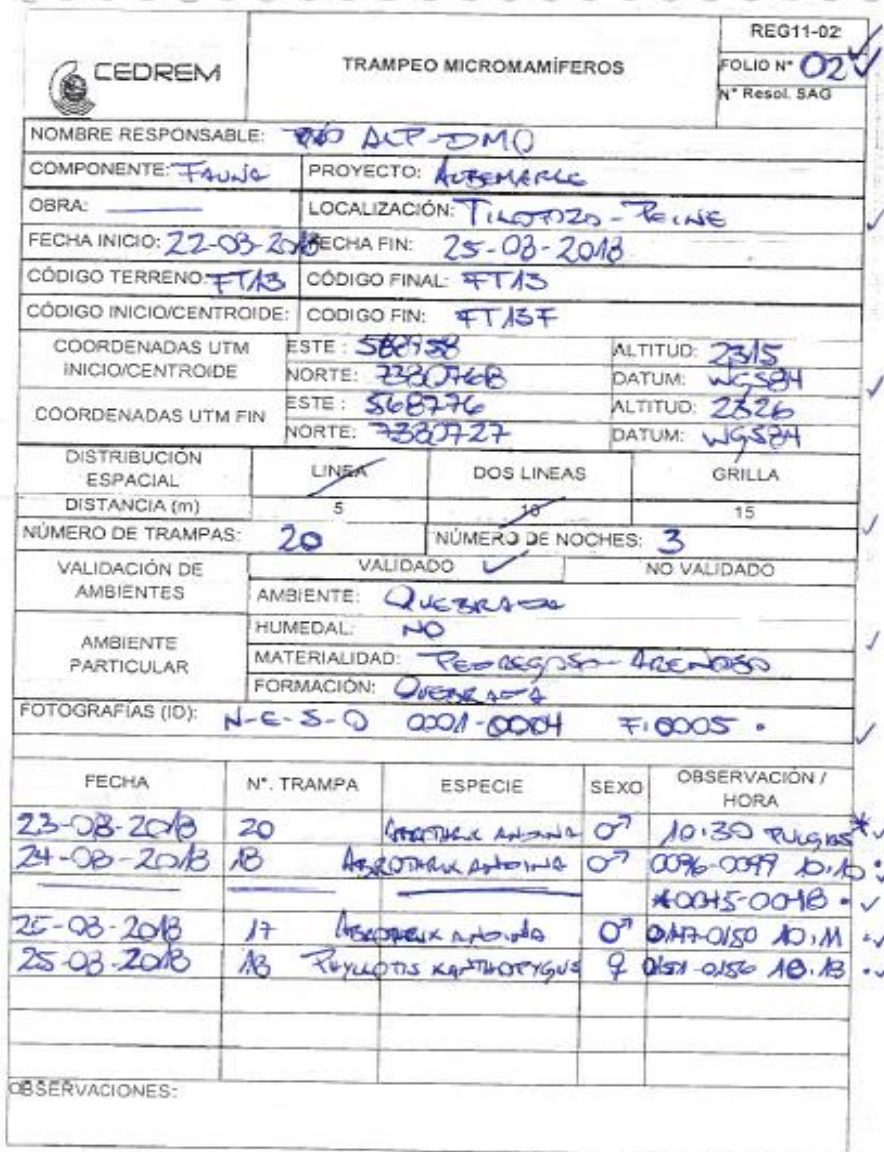 REG11-02
CEDREM
TRAMPEO MICROMAMÍFEROS
FOLIO N° 02
N° Resol. SAG
NOMBRE RESPONSABLE: ALP-DMO
COMPONENTE: FAUNA PROYECTO: ALBEMARLE
OBRA: LOCALIZACIÓN: TILOPOZO - PEINE
FECHA INICIO: 22-08-2018 FECHA FIN: 25-08-2018
CÓDIGO TERRENO: FT13 CÓDIGO FINAL: FT13
CÓDIGO INICIO/CENTROIDE: CODIGO FIN: FT13F
COORDENADAS UTM INICIO/CENTROIDE
ESTE: ALTITUD: 2315
NORTE: 7380768 DATUM: WGS84
COORDENADAS UTM FIN
ESTE: 568776 ALTITUD: 2326
NORTE: 7380727 DATUM: WGS84
DISTRIBUCIÓN ESPACIAL LINEA DOS LINEAS GRILLA
DISTANCIA (m) 5 10 15
NÚMERO DE TRAMPAS: 20 NÚMERO DE NOCHES: 3
VALIDACIÓN DE AMBIENTES VALIDADO ✓ NO VALIDADO
AMBIENTE: QUEBRADA
AMBIENTE PARTICULAR
HUMEDAL: NO
MATERIALIDAD: PEDREGOSO - ARENOSO
FORMACIÓN: QUEBRADA
FOTOGRAFÍAS (ID): N-E-S-O 0001-0004 F:0005
FECHA N°. TRAMPA ESPECIE SEXO OBSERVACIÓN / HORA
23-08-2018 20 ABROTHRIX ANDINA ♂ 10:30 PULGAS*
24-08-2018 18 ABROTHRIX ANDINA ♂ 0096-0099 10:10
*0045-0048
25-08-2018 17 ABROTHRIX ANDINA ♂ 0147-0150 10:11
25-08-2018 18 PHYLLOTIS XANTHOPYGUS ♀ 0151-0156
OBSERVACIONES: